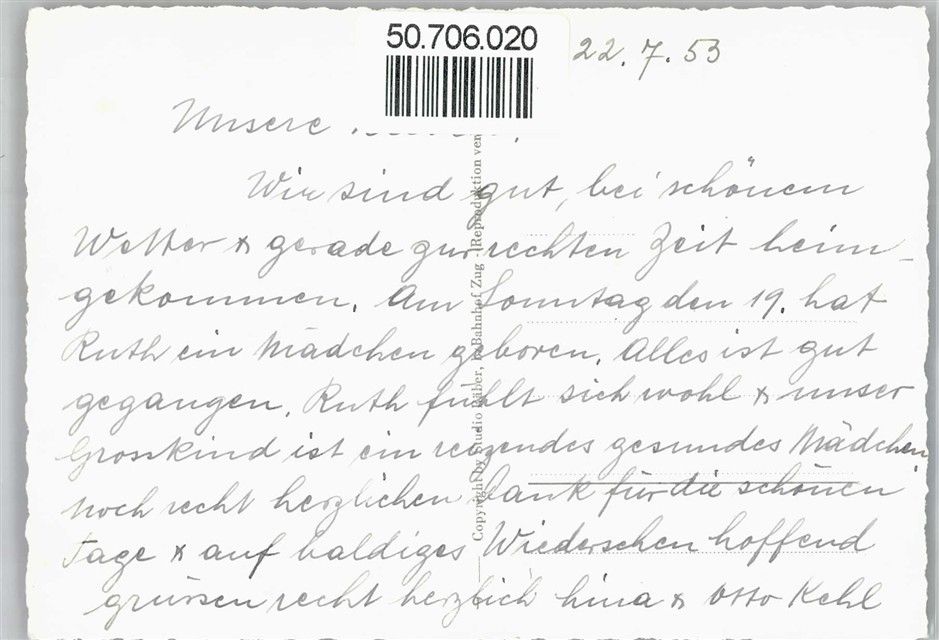 50.706.020
22.7.53
Unsere
Wir sind gut, bei schönem
Wetter & gerade zur rechten Zeit heim-
gekommen. Am Sonntag den 19. hat
Ruth ein Mädchen geboren. Alles ist gut
gegangen. Ruth fühlt sich wohl & unser
Grosskind ist ein reizendes gesundes Mädchen.
Noch recht herzlichen Dank für die schönen
Tage & auf baldiges Wiedersehen hoffend
grüssen recht herzlich Lina & Otto Kehl
Copyright by Studio Räber, b/Bahnhof Zug - (Reproduktion ver